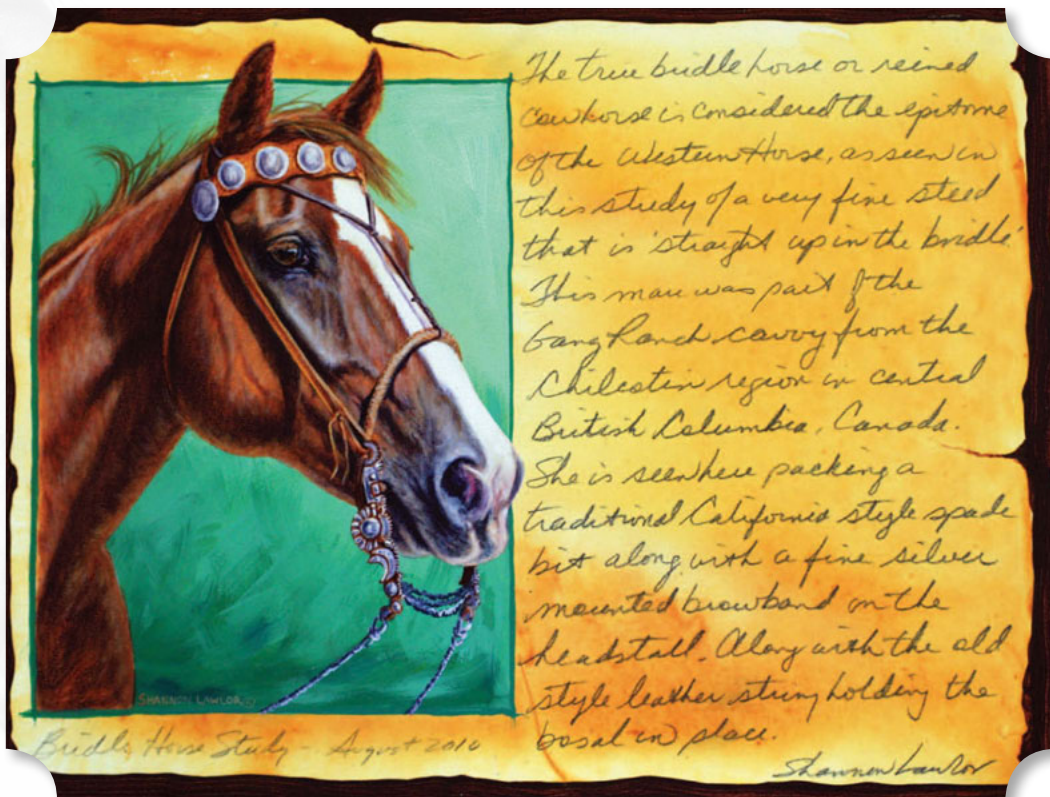 The true bridle horse or reined
cowhorse is considered the epitome
of the Western Horse, as seen in
this study of a very fine steed
that is 'straight up in the bridle'.
This mare was part of the
Gang Ranch cavvy from the
Chilcotin region in central
British Columbia, Canada.
She is seen here packing a
traditional California style spade
bit along with a fine silver
mounted browband on the
headstall. Along with the old
style leather string holding the
bosal in place.
Shannon Lawlor
SHANNON LAWLOR
Bridle Horse Study - August 2010